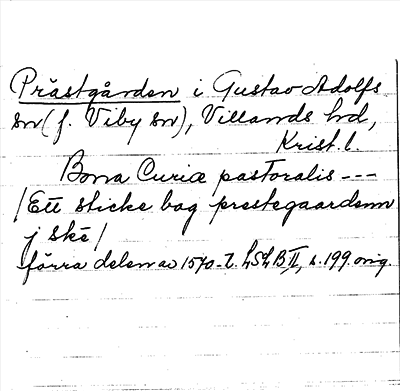 Prästgården i Gustav Adolfs
sn (f. Viby sn), Villands hd,
Krist. l.
Bona Curiæ pastoralis ---
/Ett sticke bag prestegaardenn
j ske/
förra delen av 1570-t. LSLB II, s. 199 orig